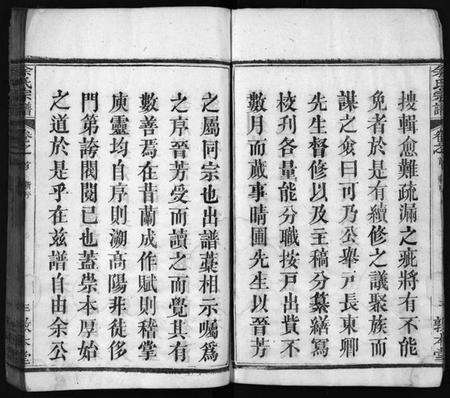 搜輯愈難疏漏之疵將有不能
免者於是有續修之議聚族而
謀之僉曰可乃公舉戶長東卿
先生督修以及主稿分纂繕寫
校刊各量能分職按戶出貲不
數月而蕆事晴圃先生以晉芳
之屬同宗也出譜藁相示囑爲
之序晉芳受而讀之而覺其有
數善焉在昔蘭成作賦則稽掌
庾靈均自序則溯高陽非徒侈
門第誇閥閱已也蓋崇本厚始
之道於是乎在茲譜自由余公
余氏宗譜
敦本堂